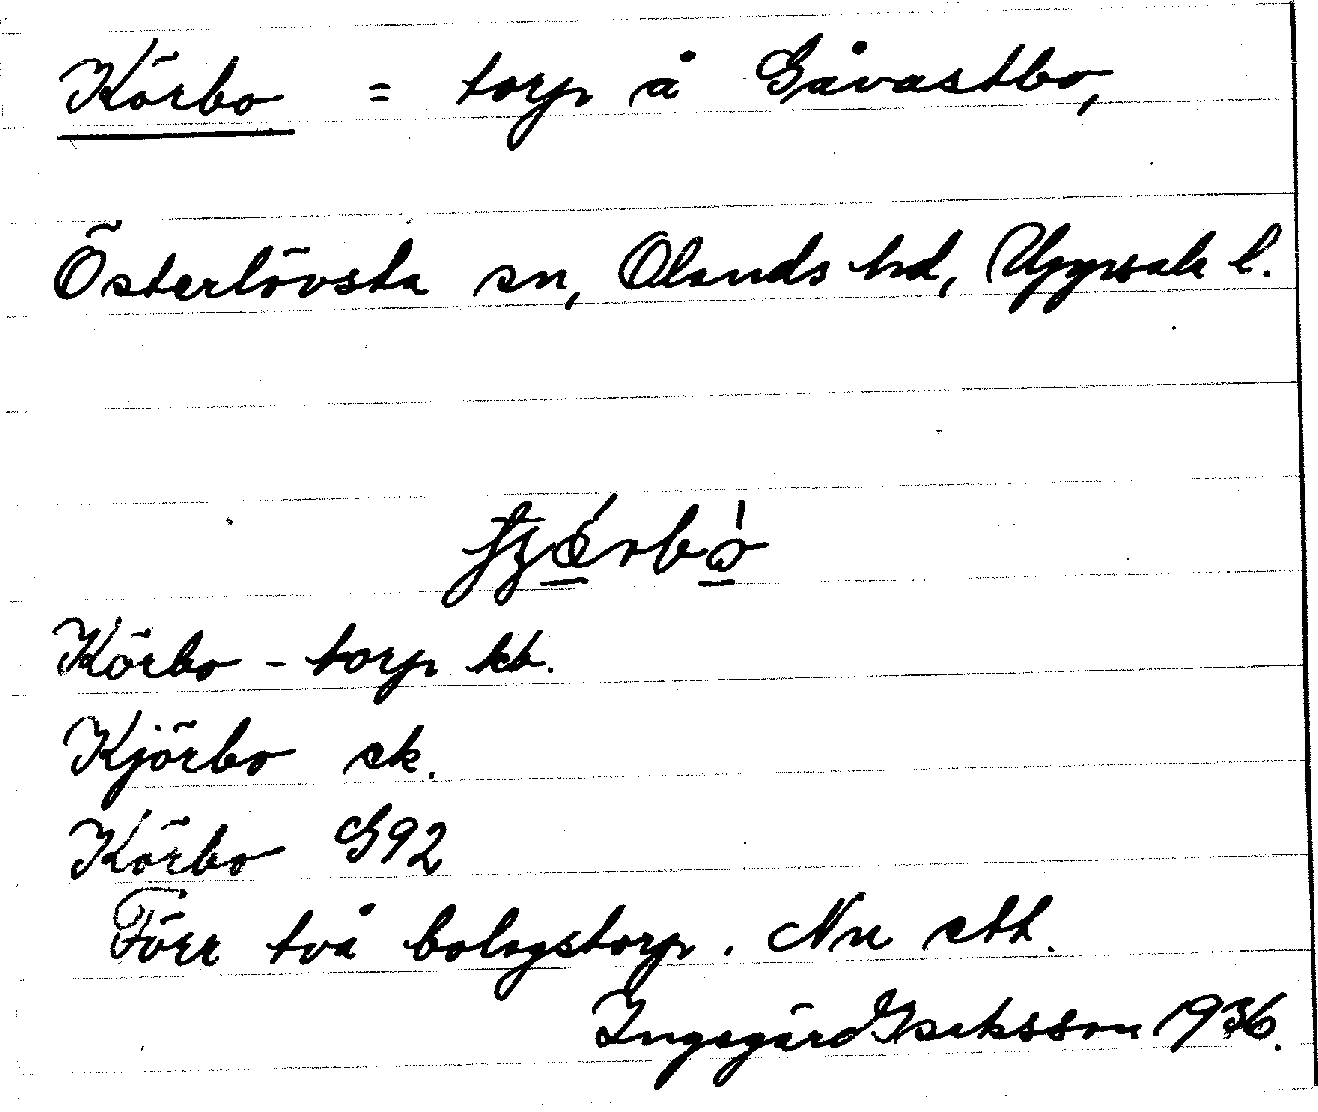 Körbo = torp å Gåvastbo,
Österlövsta sn, Olands hd, Uppsala l.
Körbo - torp kb.
Kjörbo ek.
Körbo G92
Förr två bolagstorp. Nu ett.
Ingegärd Isaksson 1936.